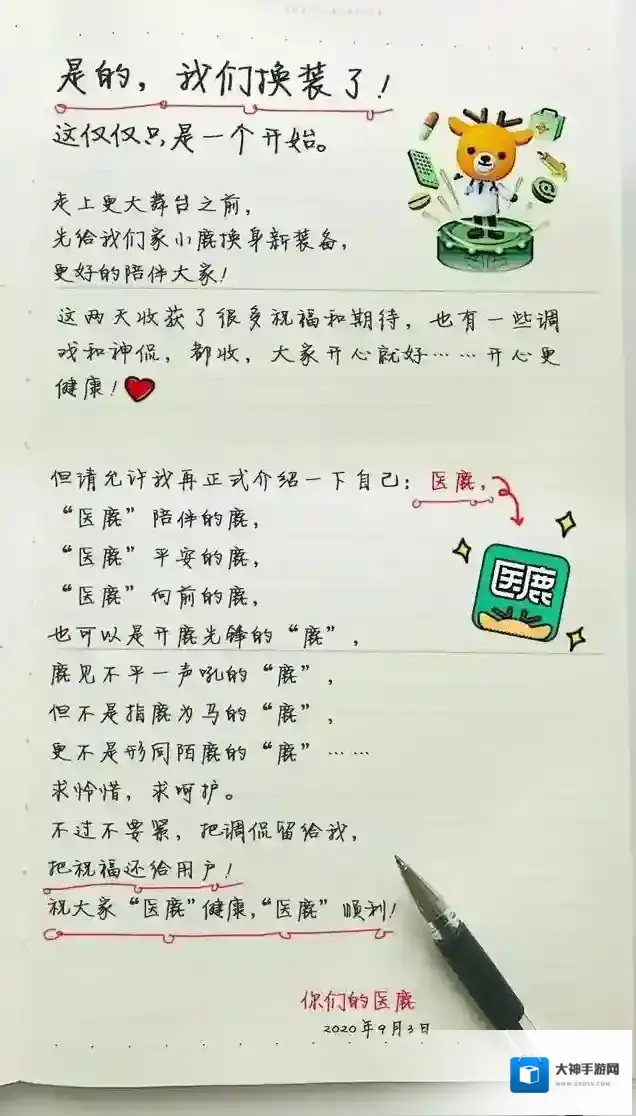 是的，我们换装了！
这仅仅只是一个开始。
走上更大舞台之前，
先给我们家小鹿换身新装备，
更好的陪伴大家！
这两天收获了很多祝福和期待，也有一些调
戏和神侃，都收，大家开心就好……开心更
健康！
但请允许我再正式介绍一下自己：医鹿，
“医鹿”陪伴的鹿，
“医鹿”平安的鹿，
“医鹿”向前的鹿，
医鹿
也可以是开鹿先锋的“鹿”，
鹿见不平一声吼的“鹿”，
但不是指鹿为马的“鹿”，
更不是形同陌鹿的“鹿”……
求怜惜，求呵护。
不过不要紧，把调侃留给我，
把祝福还给用户！
祝大家“医鹿”健康，“医鹿”顺利！
你们的医鹿
2020年9月3日
大神手游网